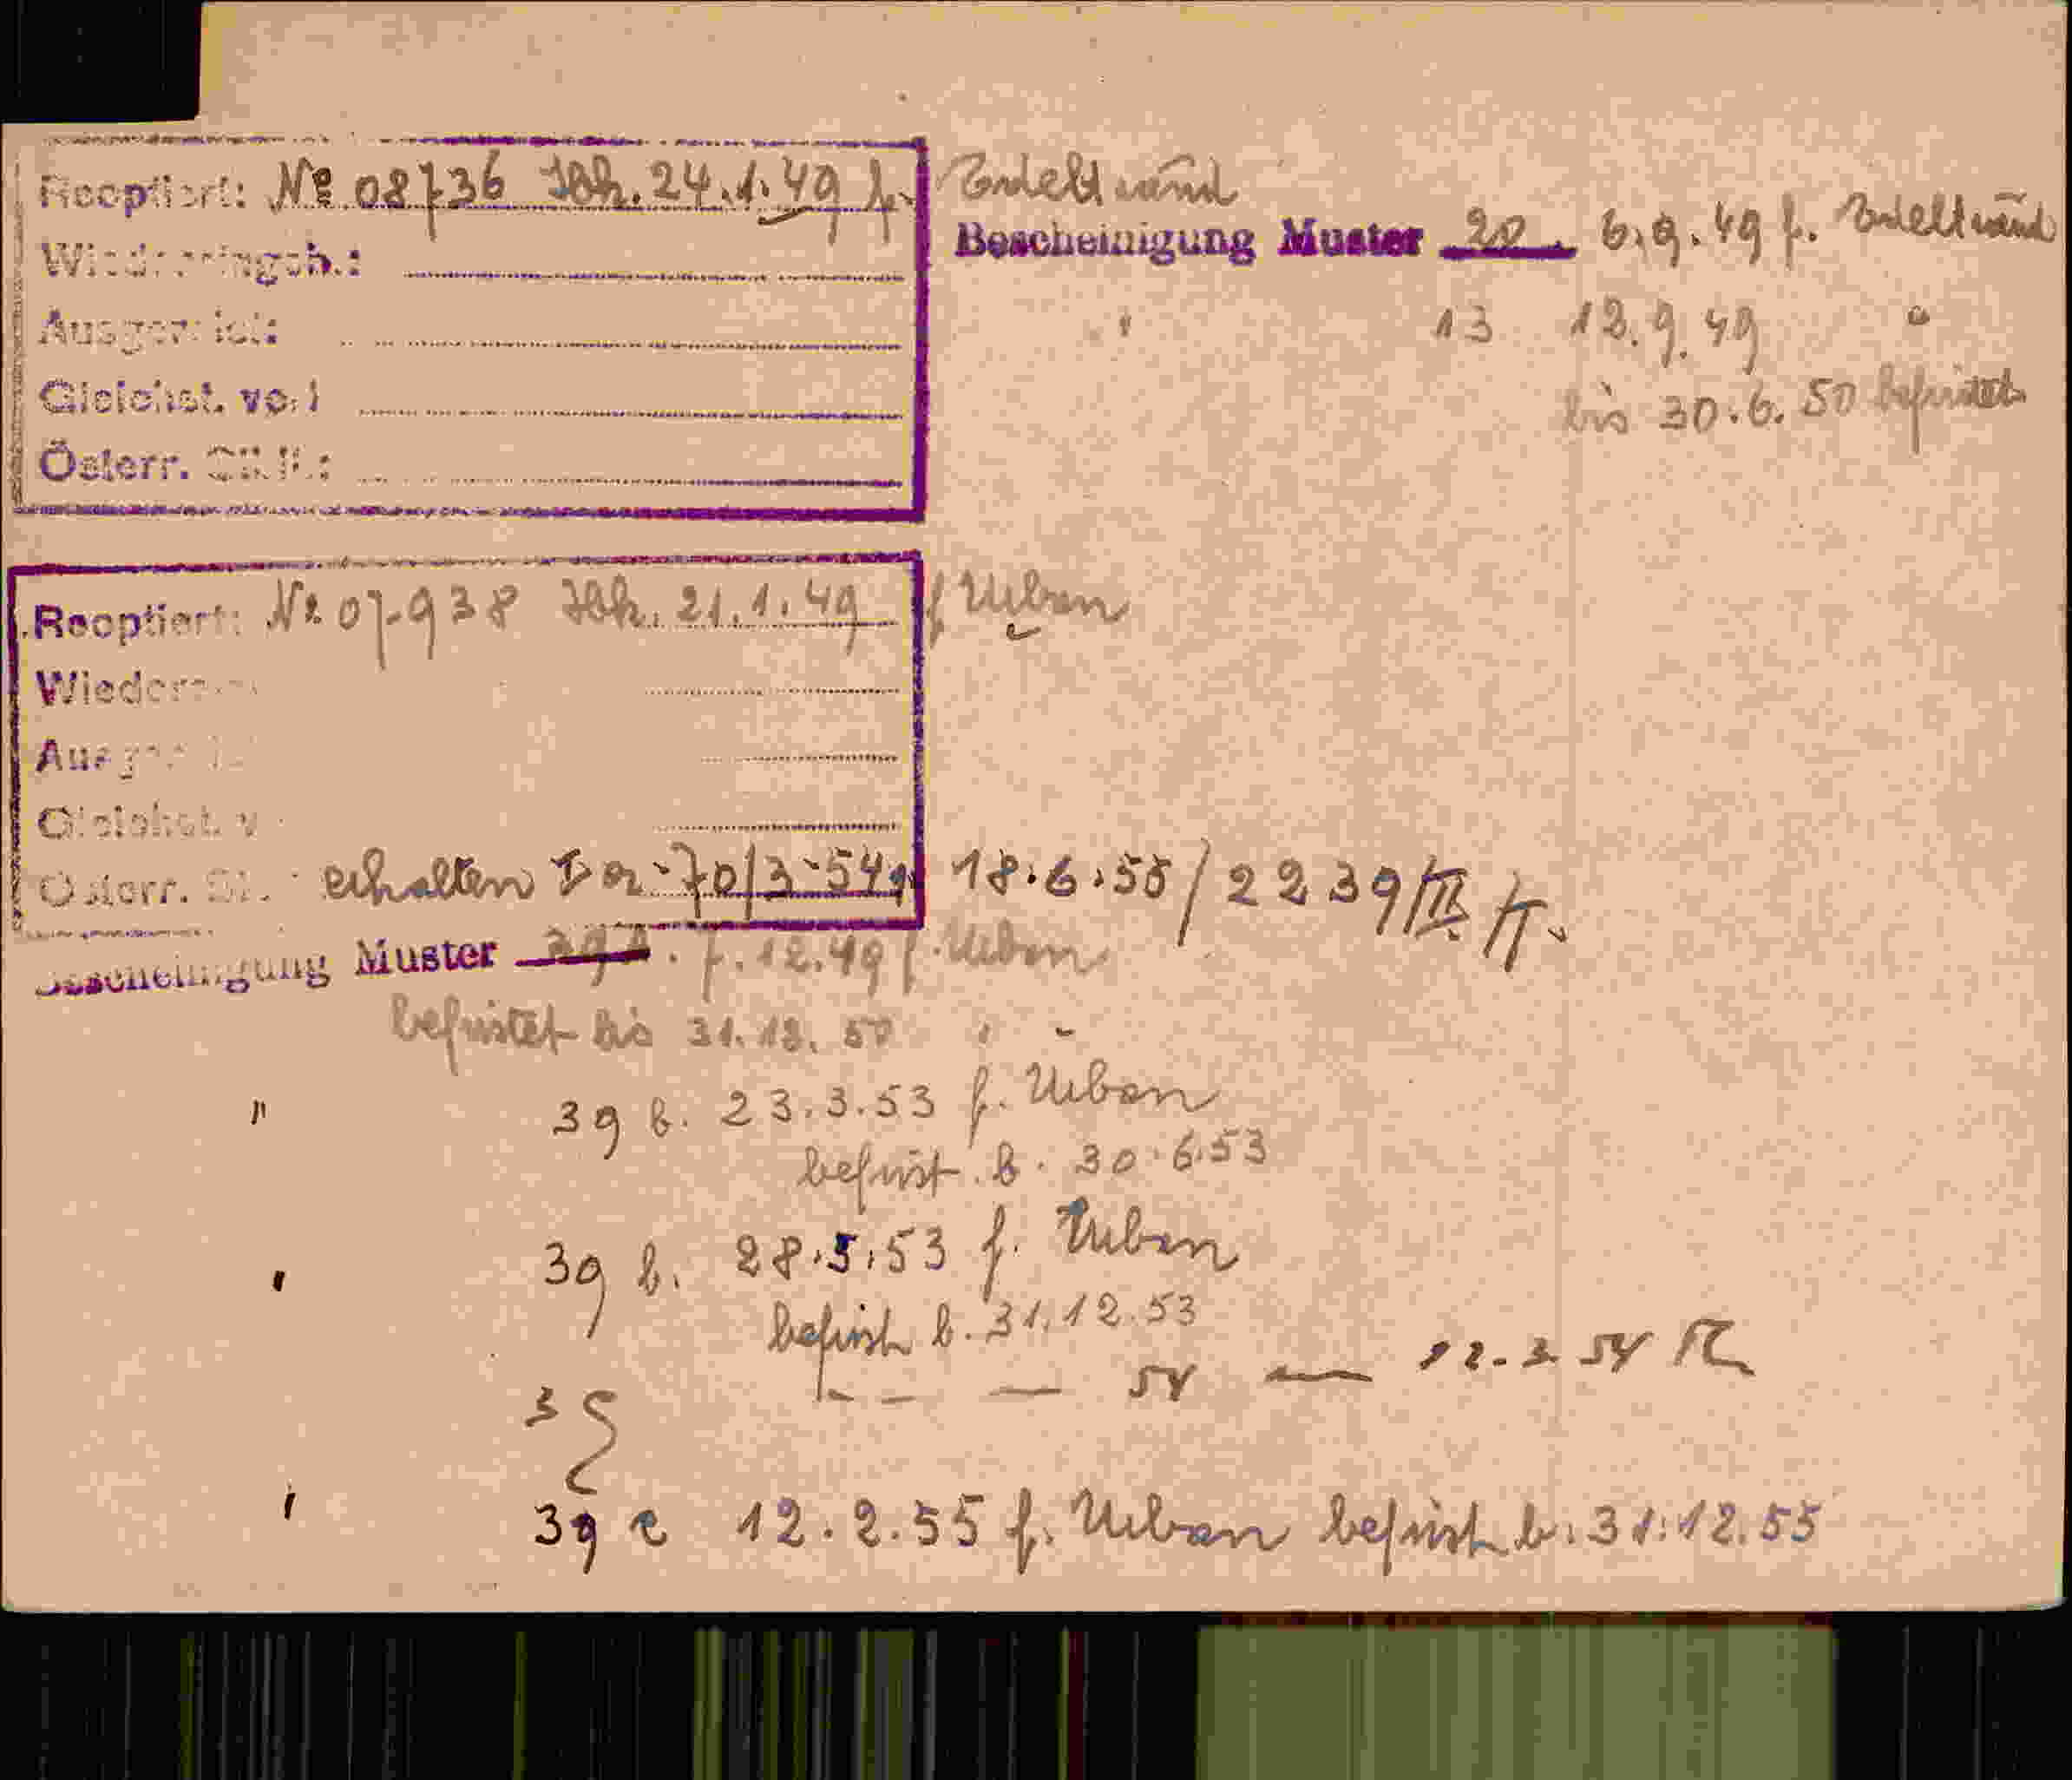 Reoptiert: № 08736 Ibk. 24.1.49 f. Edeltraud
Wiedereingeb.:
Ausgereist:
Gleichst. vorl
Österr.
Bescheinigung Muster 20. 6.9.49 f. Edeltraud
" 13 12.9.49 "
bis 30.6.50 befristet
Reoptiert: № 07938 Ibk. 21.1.49 f Urban
Gleichst. v
Österr. St. erhalten 70/3-54 18.6.55/2239/III
Bescheinigung Muster 39 . 7.12.49 f. Urban
befristet bis 31.12.50 " "
" 39 b. 23.3.53 f. Urban
befrist. b. 30.6.53
" 39 b. 28.5.53 f. Urban
befrist b. 31.12.53
— — 54 — 12.3.54
39
" 39 c 12.2.55 f. Urban befrist b. 31.12.55